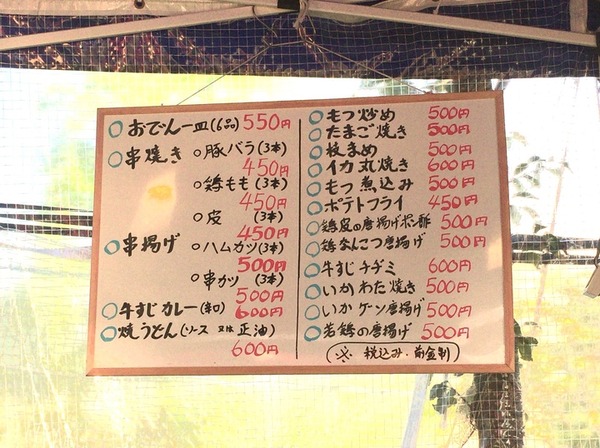 ○おでん一皿(6品) 550円
○串焼き ○豚バラ(3本)
450円
○鶏もも(3本)
450円
○皮 (3本)
450円
○串揚げ ○ハムカツ(3本)
500円
○串カツ (3本)
500円
○牛すじカレー(辛口) 600円
○焼うどん(ソース 又は 正油)
600円
○もつ炒め 500円
○たまご焼き 500円
○枝まめ 500円
○イカ丸焼き 600円
○もつ煮込み 500円
○ポテトフライ 450円
○鶏皮の唐揚げポン酢 500円
○鶏なんこつ唐揚げ 500円
○牛すじチヂミ 600円
○いかわた焼き 500円
○いかゲソ唐揚げ 500円
○若鶏の唐揚げ 500円
※ 税込み・前金制